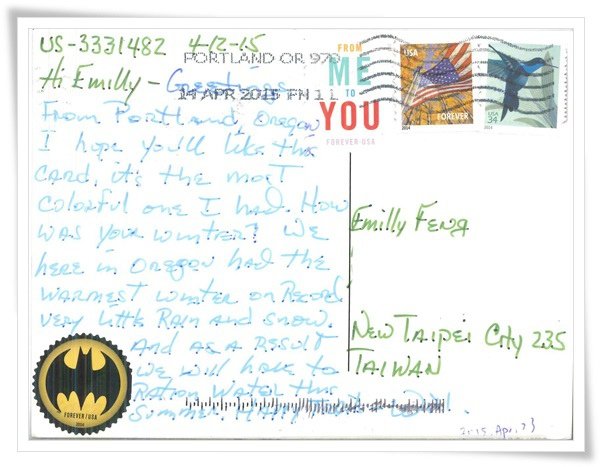 US-3331482 4-12-15
PORTLAND OR 970
14 APR 2015 PM 1 L
FROM
ME
TO
YOU
FOREVER USA
2014
FOREVER
USA
34
Hi Emilly - Greetings
From Portland, Oregon
I hope you'll like this
card, it's the most
colorful one I had. How
was your winter? We
here in Oregon had the
warmest winter on Record
very little Rain and snow.
And as a result
we will have to
Ration Water this
Summer. Happy
FOREVER / USA
2014
Emilly Feng
New Taipei City 235
TAIWAN
2015. Apr. 23